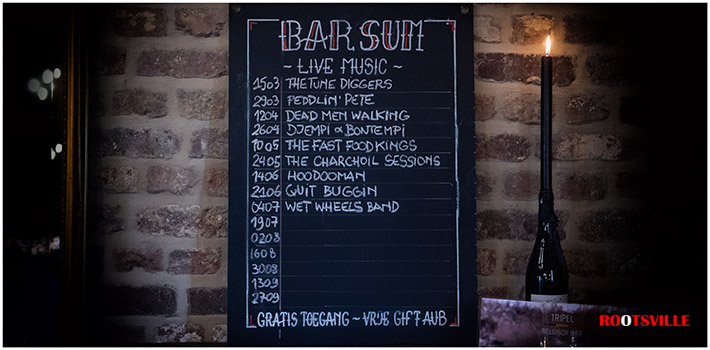 BAR SUM
~ LIVE MUSIC ~
1503 THE TUNE DIGGERS
2903 PEDDLIN' PETE
1204 DEAD MEN WALKING
2604 DJEMPI & BONTEMPI
1005 THE FAST FOOD KINGS
2405 THE CHARCHOIL SESSIONS
1406 HOODOOMAN
2106 QUIT BUGGIN
0407 WET WHEELS BAND
1907
0208
1608
3008
1309
2709
GRATIS TOEGANG ~ VRIJE GIFT AUB
TRIPEL
BELGISCH BIER
ROOTSVILLE